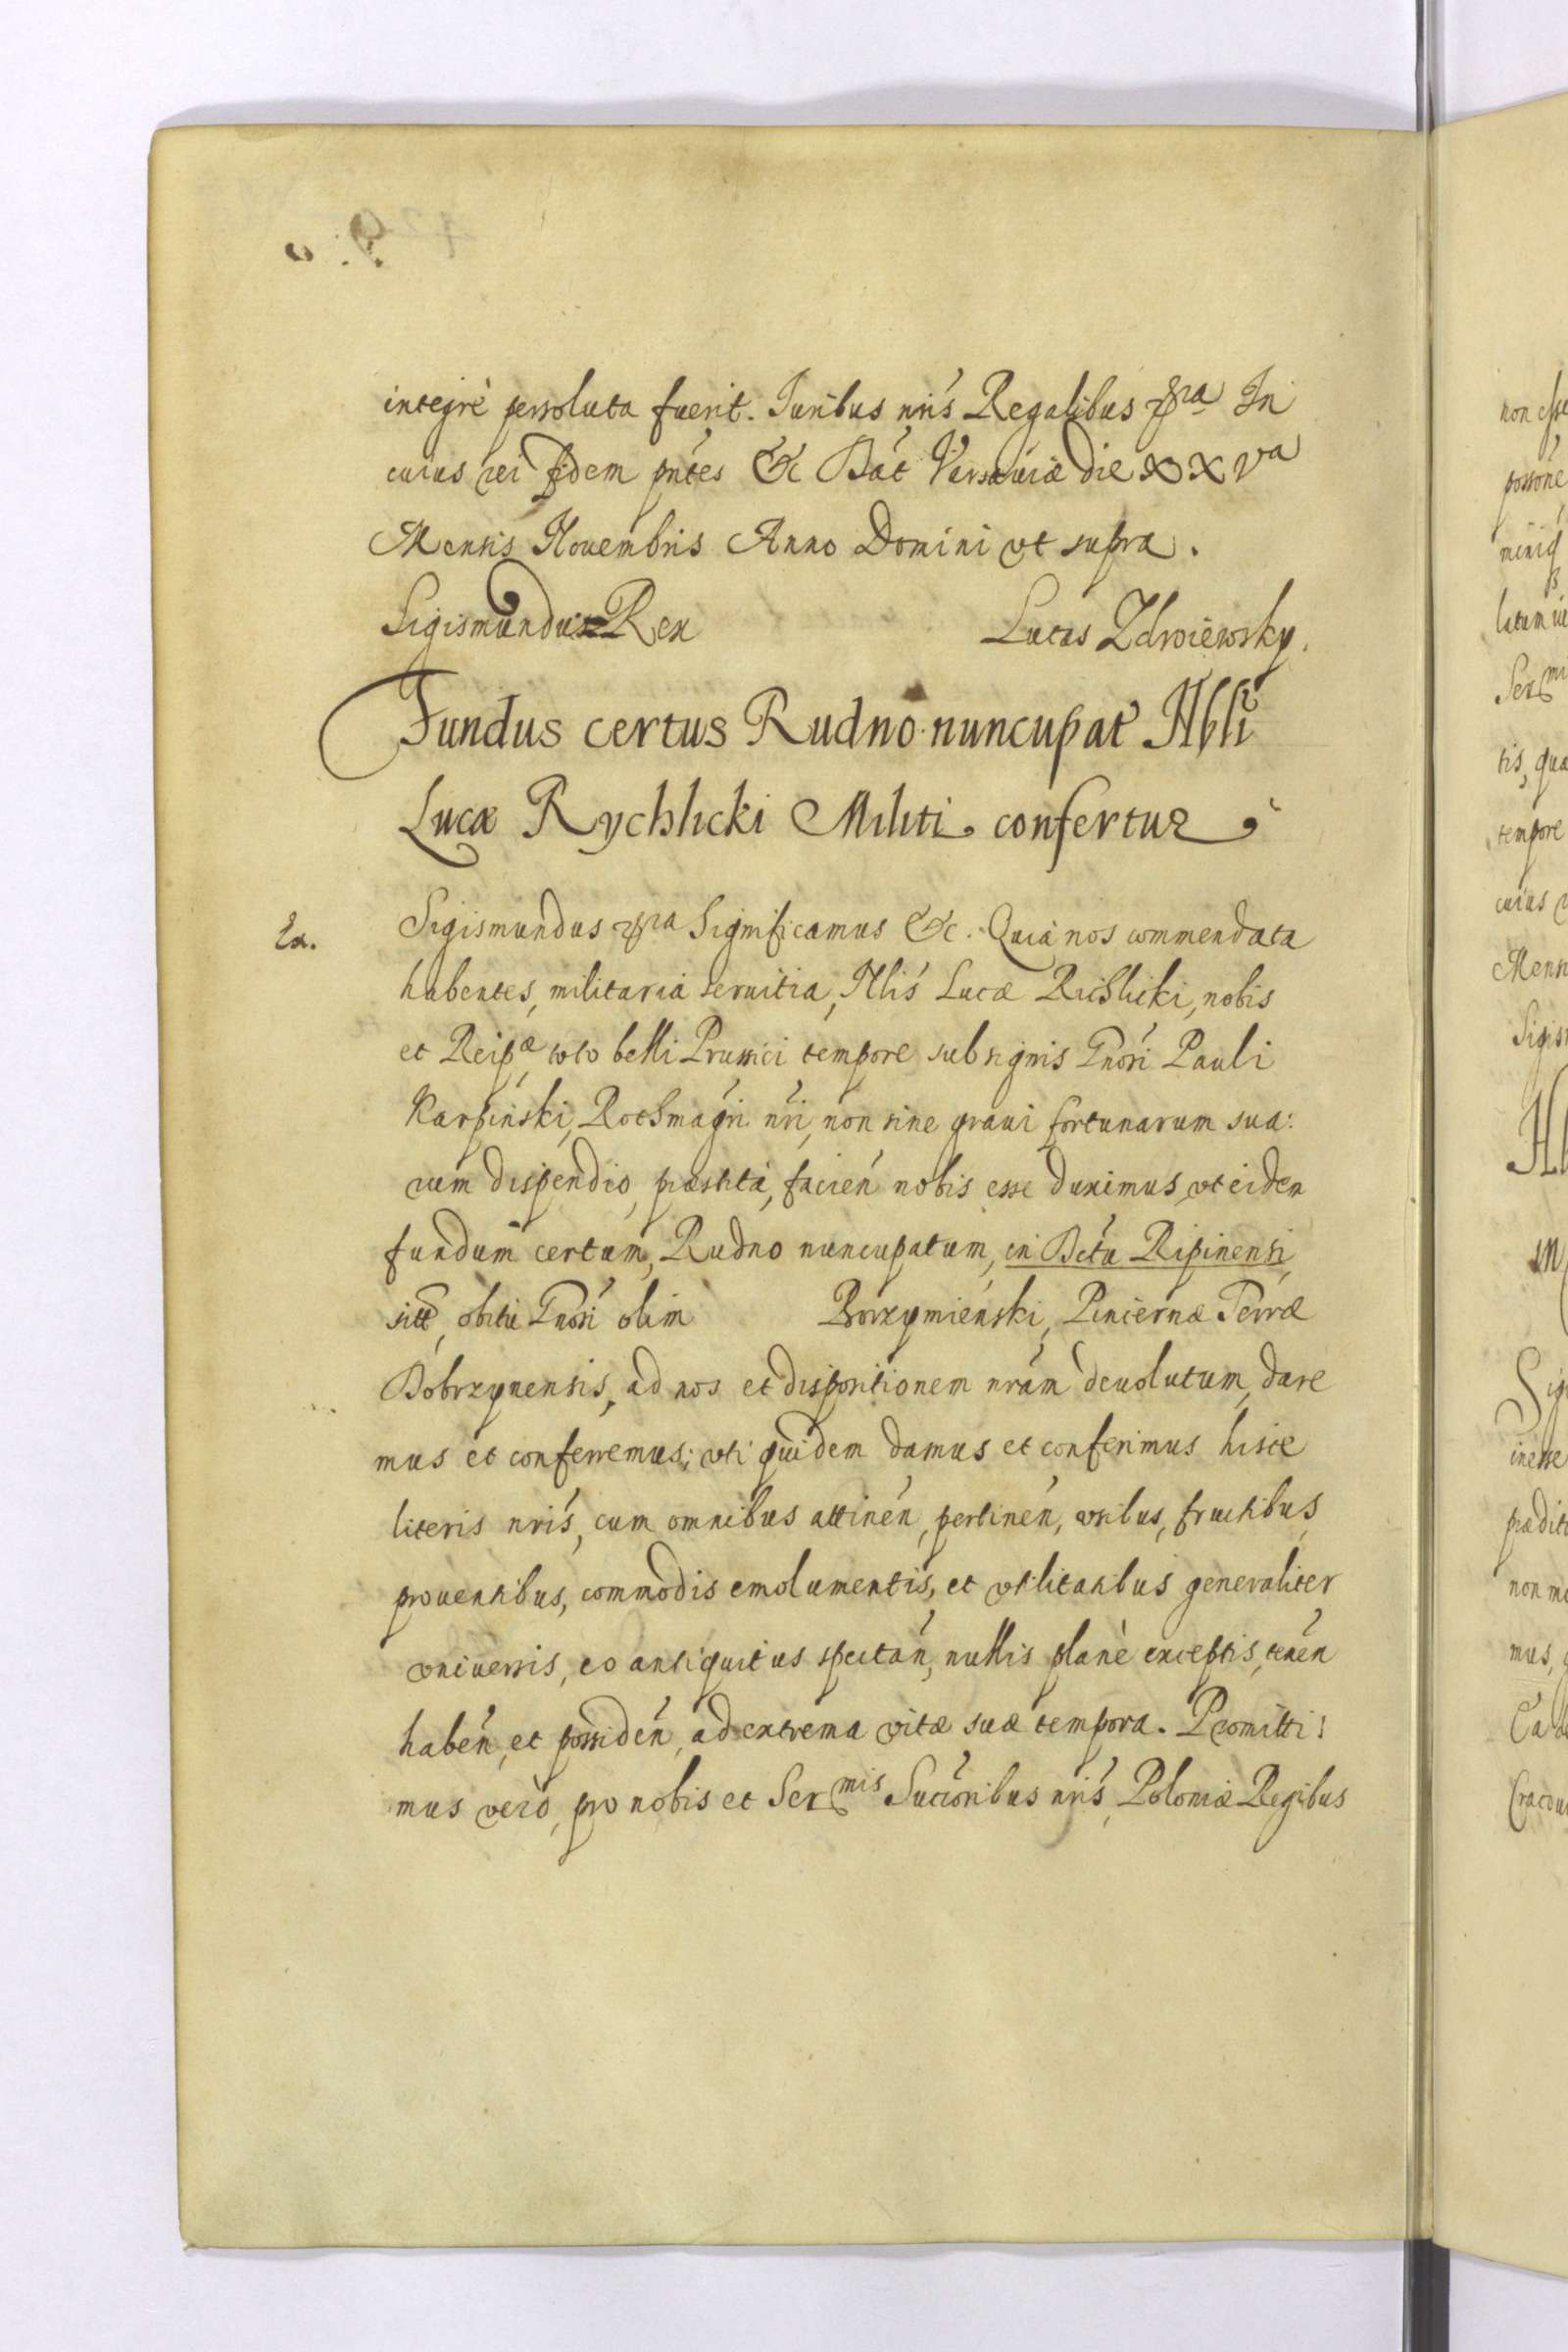 integrè persoluta fuerit. Iuribus nrīs Regalibus In
cuius rei fidem pntēs &c Dat Varsauiæ die XXVa
Mensis Nouembris Anno Domini vt supra.
Sigismundus Rex Lucas Zdroiewsky.
Fundus certus Rudno nuncupat Nbli
Lucæ Rychlicki Militi confertur
Sigismundus Significamus &c. Quia nos commendata
habentes, militaria seruitia, Nlis Lucæ Richlicki, nobis
et Reipæ, toto belli Prussici tempore sub signis Gnosi Pauli
Karpinski, Rothmagri nri, non sine graui fortunarum sua:
rum dispendio, præstita, facien nobis esse duximus, vt eidem
fundum certum, Rudno nuncupatum, in Dctu Ripinensi,
sitt, obitu Gnosi olim Borzymienski, Pincernæ Terræ
Dobrzynensis, ad nos et dispositionem nram deuolutum, dare
mus et conferremus; vti quidem damus et conferimus hisce
literis nris, cum omnibus attinen, pertinen, vsibus, fructibus,
prouentibus, commodis emolumentis, et vtilitatibus generaliter
vniuersis, eo antiquitus spectan, nullis planè exceptis, tenen
haben, et possiden, ad extrema vitæ suæ tempora. Promitti:
mus verò, pro nobis et Sermis Succoribus nris, Poloniæ Regibus